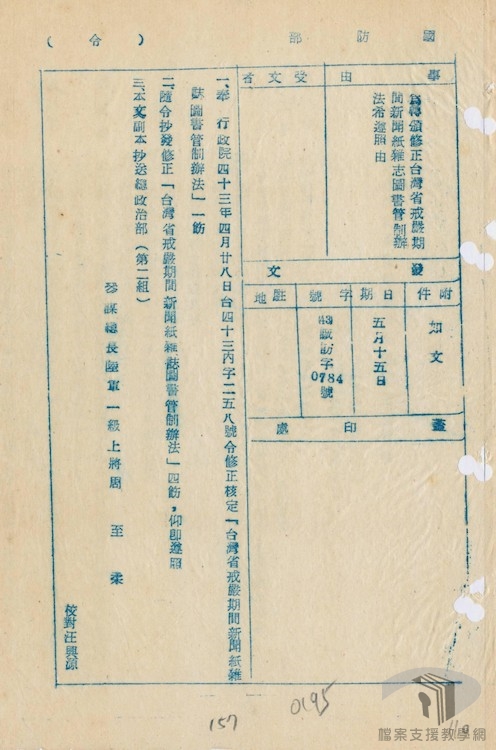 國防部（令）
事由
受文者
為轉頒修正台灣省戒嚴期
間新聞紙雜志圖書管制辦
法希遵照由
發文
附件
日期
字號
駐地
如文
五月十五日
43
字
0784
號
蓋印處
一、奉　行政院四十三年四月廿八日台四十三內字二五八號令修正核定「台灣省戒嚴期間新聞紙雜
誌圖書管制辦法」一份
二、隨令抄發修正「台灣省戒嚴期間新聞紙雜誌圖書管制辦法」四份，仰即遵照
三、本文副本抄送總政治部（第二組）
參謀總長陸軍一級上將周　至　柔
校對汪興源
0195
157
檔案支援教學網